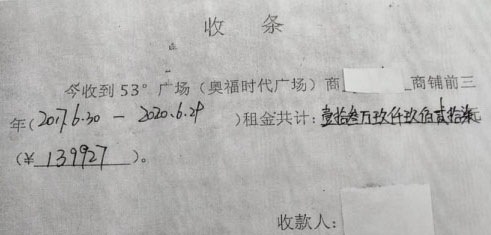 收 条
今收到 53° 广场（奥福时代广场）商 商铺前三
年（2017.6.30 — 2020.6.29 ）租金共计：壹拾叁万玖仟玖佰贰拾柒元
（¥ 139927 ）。
收款人：